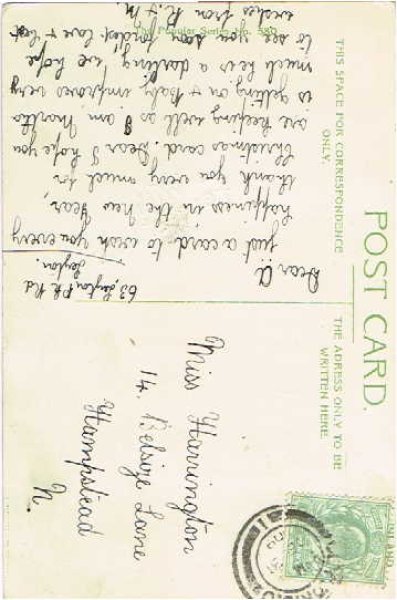 The Popular Series No. 580
POST CARD.
THIS SPACE FOR CORRESPONDENCE
ONLY.
THE ADRESS ONLY TO BE
WRITTEN HERE.
63, Leyton Pk Rd
Leyton.
Dear A
Just a card to wish you every
happiness in the New Year,
thank you very much for
Christmas card. Dear I hope you
are keeping well as I am Martha
is getting on & Baby improves very
much he is a darling we hope
to see you soon fondest love & best
wishes from
Miss Harrington
14. Belsize Lane
Hampstead
N.